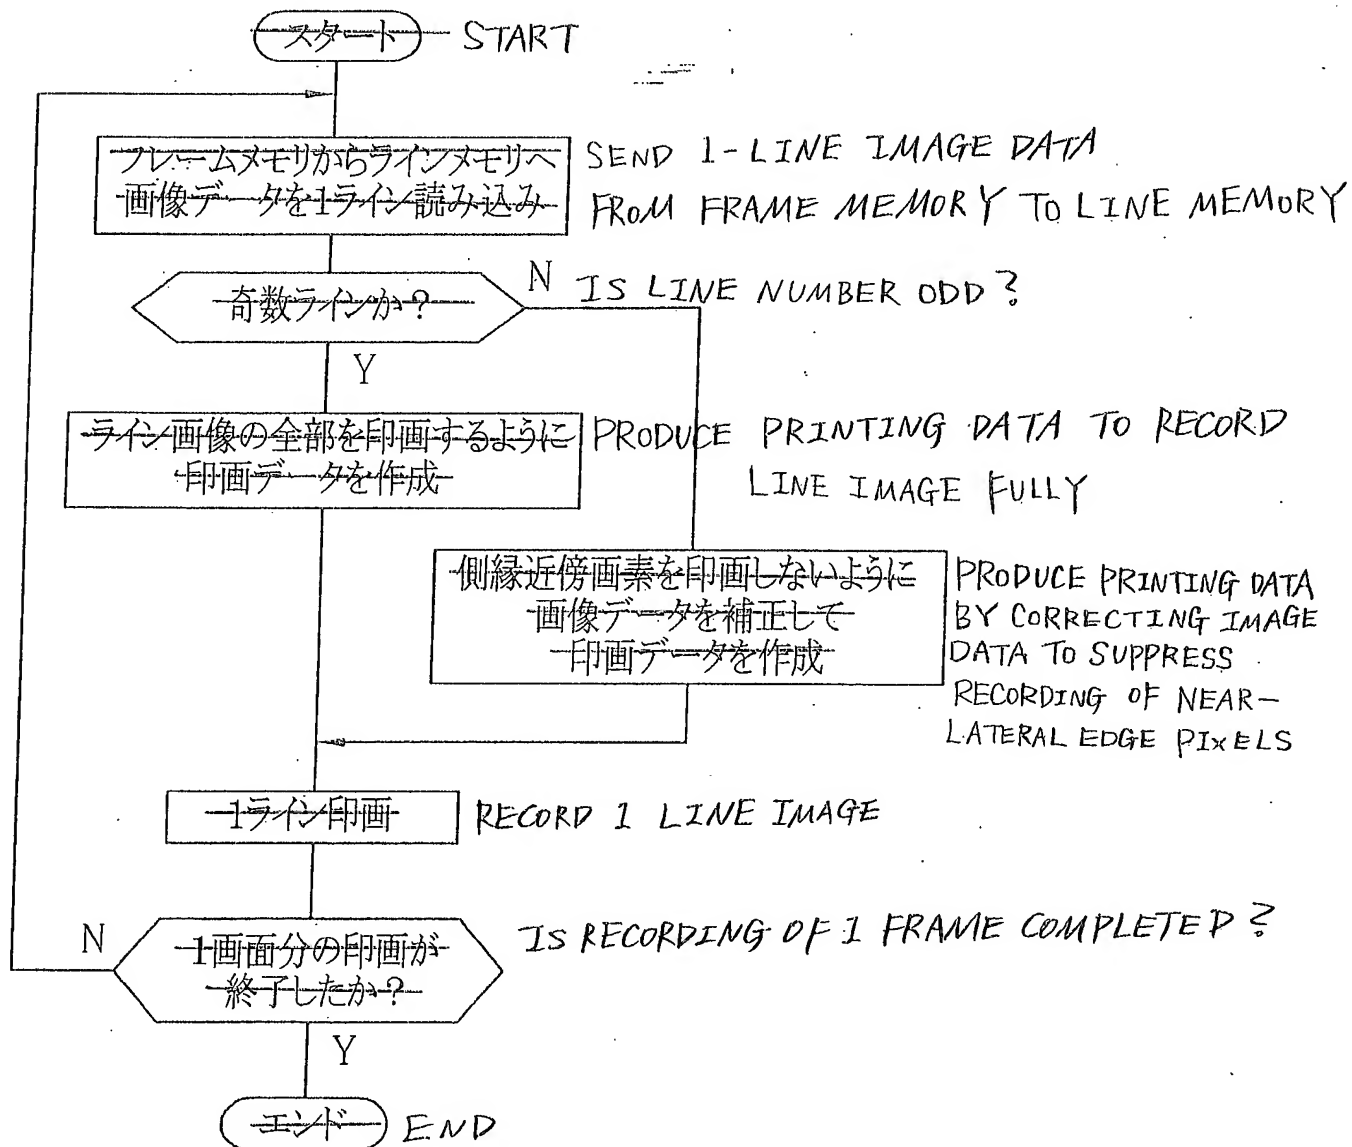 スタート START
フレームメモリからラインメモリへ
画像データを1ライン読み込み
SEND 1-LINE IMAGE DATA
FROM FRAME MEMORY TO LINE MEMORY
奇数ラインか?
N
IS LINE NUMBER ODD?
Y
ライン画像の全部を印画するように
印画データを作成
PRODUCE PRINTING DATA TO RECORD
LINE IMAGE FULLY
側縁近傍画素を印画しないように
画像データを補正して
印画データを作成
PRODUCE PRINTING DATA
BY CORRECTING IMAGE
DATA TO SUPPRESS
RECORDING OF NEAR-
LATERAL EDGE PIXELS
1ライン印画
RECORD 1 LINE IMAGE
N
1画面分の印画が
終了したか?
IS RECORDING OF 1 FRAME COMPLETED?
Y
エンド END